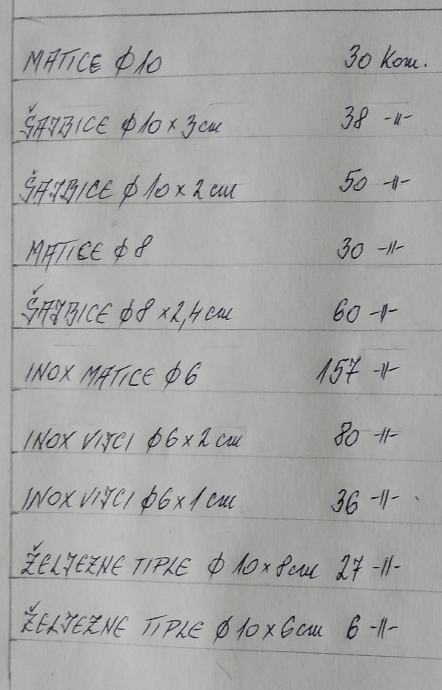 MATICE Φ10 30 Kom.
ŠAJBICE Φ10 x 3 cm 38 -||-
ŠAJBICE Φ10 x 2 cm 50 -||-
MATICE Φ8 30 -||-
ŠAJBICE Φ8 x 2,4 cm 60 -||-
INOX MATICE Φ6 157 -||-
INOX VIJCI Φ6 x 2 cm 80 -||-
INOX VIJCI Φ6 x 1 cm 36 -||-
ŽELJEZNE TIPLE Φ 10 x 8 cm 27 -||-
ŽELJEZNE TIPLE Φ 10 x 6 cm 6 -||-